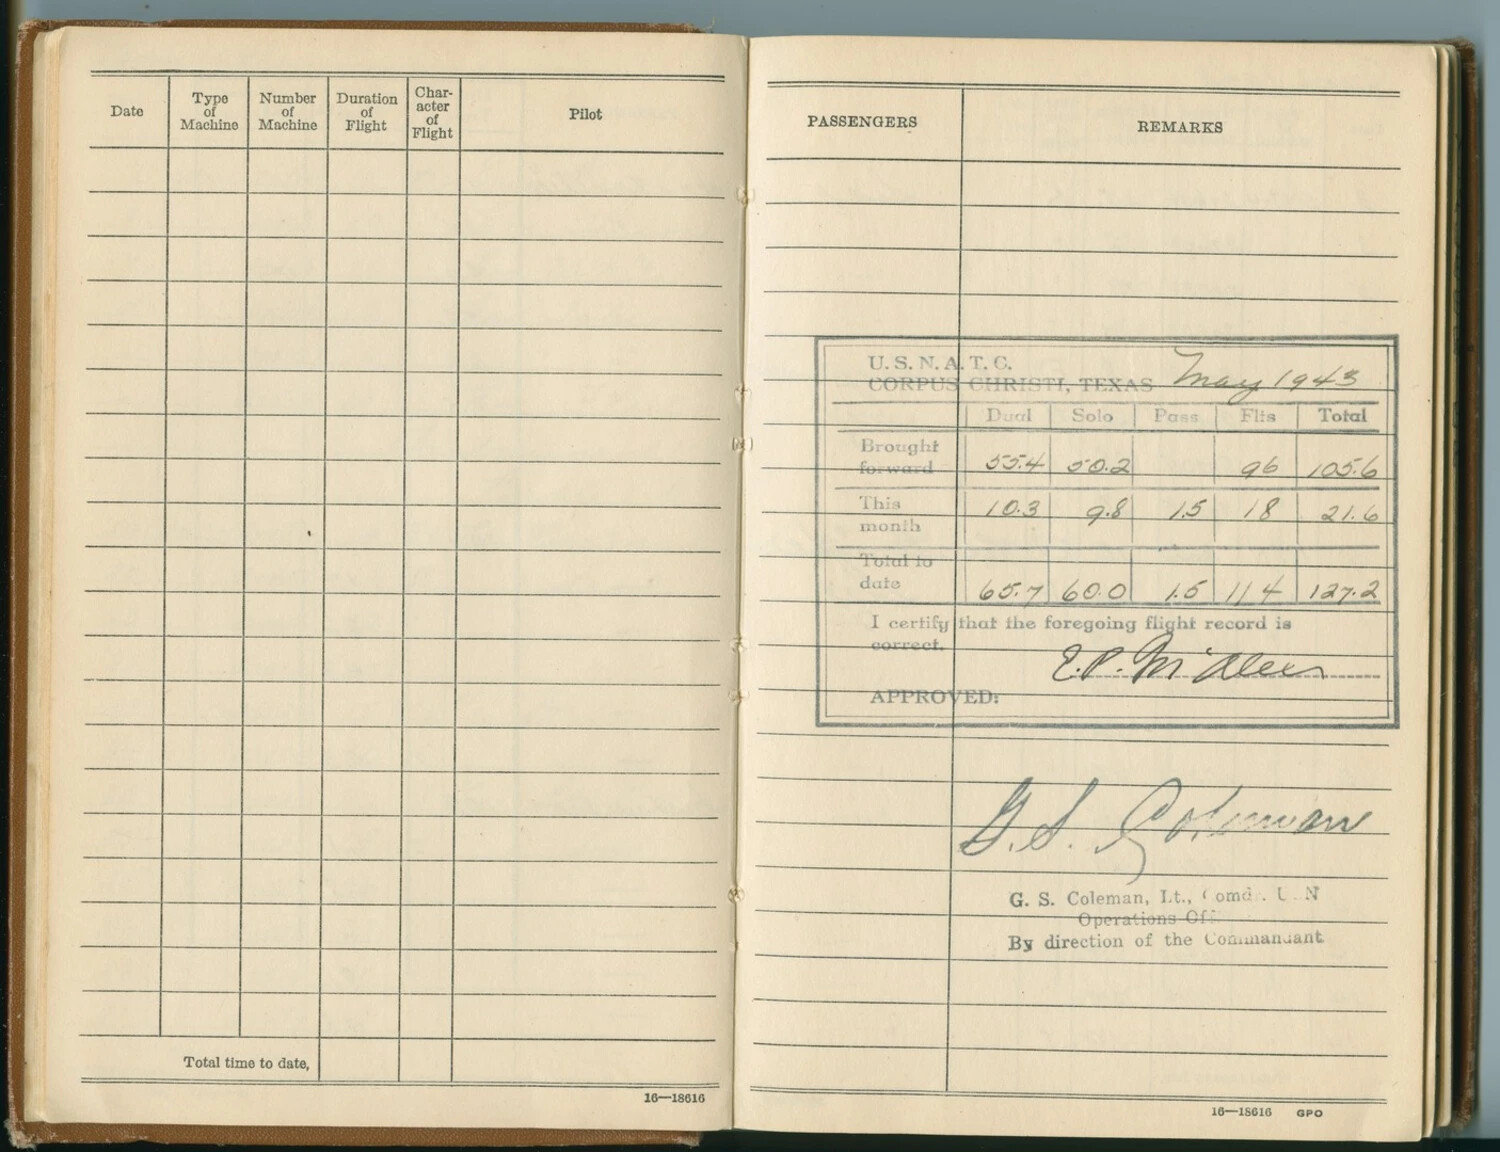 Date
Type of Machine
Number of Machine
Duration of Flight
Character of Flight
Pilot
Total time to date,
16—18616
PASSENGERS
REMARKS
U. S. N. A. T. C.
CORPUS CHRISTI, TEXAS May 1943
Dual Solo Pass Flts Total
Brought forward 55.4 50.2 96 105.6
This month 10.3 9.8 1.5 18 21.6
Total to date 65.7 60.0 1.5 114 127.2
I certify that the foregoing flight record is
correct.
E.P.
APPROVED:
G. S. Coleman
G. S. Coleman, Lt., Comdr. U N
Operations Off
By direction of the Commandant
16—18616 GPO